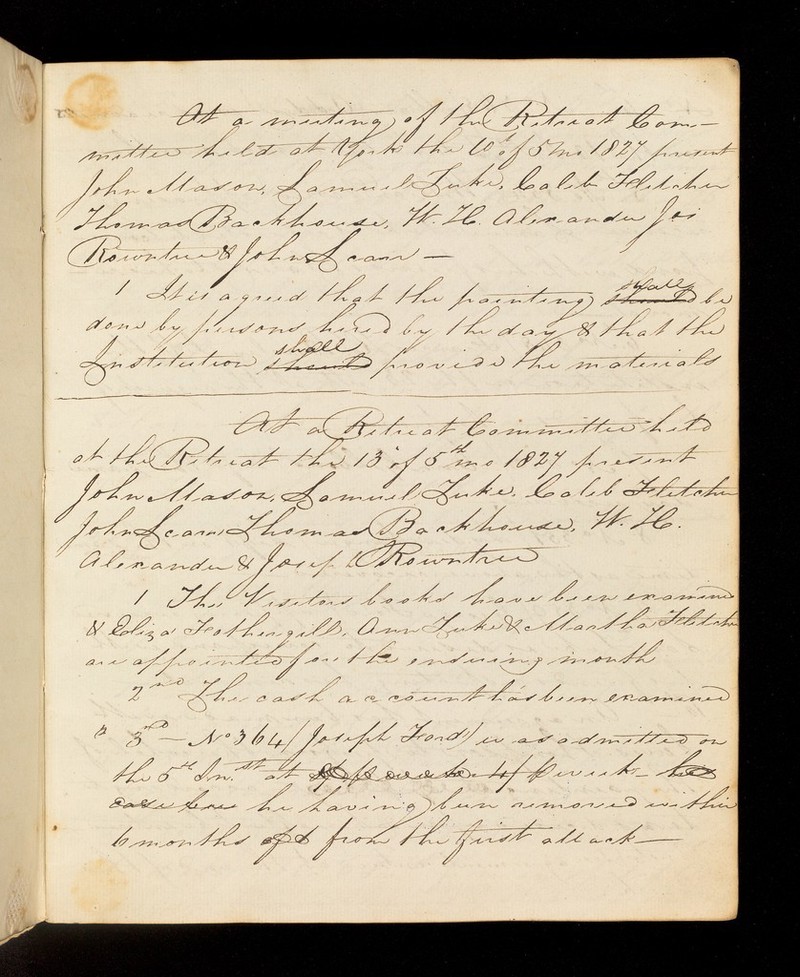 At a meeting of the Retreat Com-
mittee held at York the 10 of 5 mo 1827 present
John Mason, Samuel Tuke, Caleb Fletcher
Thomas Backhouse, W. H. Alexander Jos
Rowntree & John Scarr —
1 It is agreed that the painting should shall be
done by persons hired by the day & that the
Institution should shall provide the materials
At a Retreat Committee held
at the Retreat the 13 of 5th mo 1827 present
John Mason, Samuel Tuke, Caleb Fletcher
John Scarr Thomas Backhouse, W. H.
Alexander & Joseph Rowntree
1 The Visitors books have been examined
& Eliza Fothergill, Ann Tuke & Martha Fletcher
are appointed for the ensuing month
2nd The cash account has been examined
" 3rd — No 364 (Joseph Ford) was admitted on
the 5th Inst at 4/ P week — his
case been he having been removed within
6 months of from the first attack —